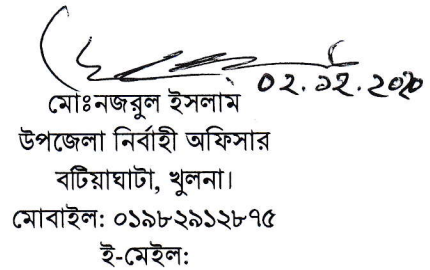 ০২.১২.২০২০
মোঃনজরুল ইসলাম
উপজেলা নির্বাহী অফিসার
বটিয়াঘাটা, খুলনা।
মোবাইল: ০১৯৮২৯১২৮৭৫
ই-মেইল: